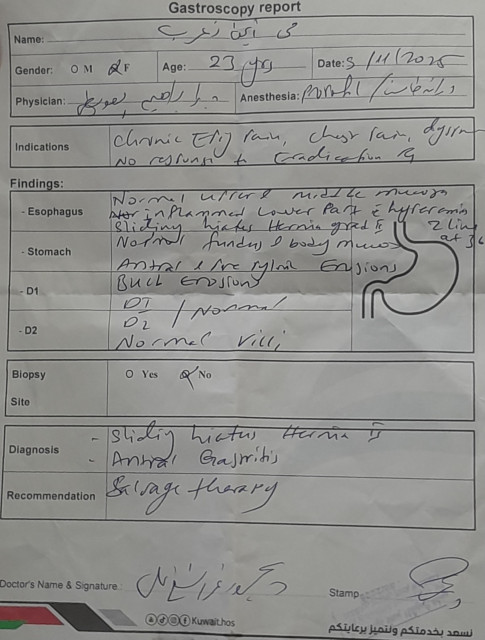 Gastroscopy report
Name:
Gender: O M O F Age: 23 yrs Date: 3/11/2025
Physician: Anesthesia:
Indications
Chronic Epig Pain, chest Pain,
No response to Eradication
Findings:
- Esophagus
Normal upper & middle mucosa
inflammed Lower Part
Sliding hiatus Hernia grad II
- Stomach
Normal fundus & body
Antral & Pre Pyloric Erosions
- D1
Bulb Erosions
D1
D2 / Normal
- D2
Normal Villi
Biopsy O Yes O No
Site
Diagnosis
- Sliding hiatus Hernia II
- Antral Gastritis
Recommendation
Salvage therapy
Doctor's Name & Signature: Stamp
Kuwait.hos
نسعد بخدمتكم ونتميز برعايتكم